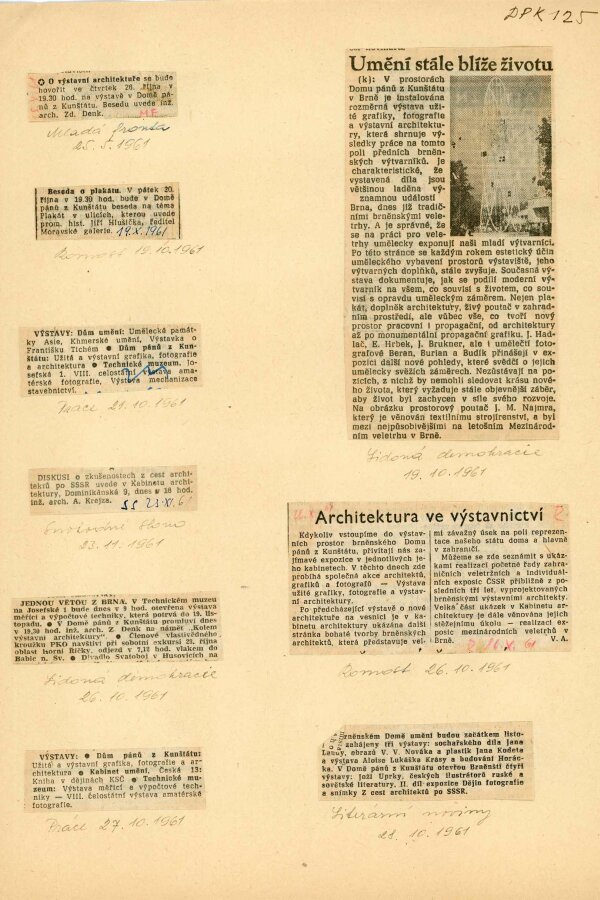 DPK 125
✪ O výstavní architektuře se bude
hovořit ve čtvrtek 26. října v
19.30 hod. na výstavě v Domě pá-
nů z Kunštátu. Besedu uvede inž.
arch. Zd. Denk.
M.F.
Mladá fronta
25. 1961
Beseda o plakátu. V pátek 20.
října v 19.30 hod. bude v Domě
pánů z Kunštátu beseda na téma
Plakát v ulicích, kterou uvede
prom. hist. Jiří Hlušička, ředitel
Moravské galerie. 19.X.1961
Rovnost 19.10.1961
VÝSTAVY: Dům umění: Umělecké památ-
ky Asie, Khmerské umění, Výstavka o
Františku Tichém ● Dům pánů z Kun-
štátu: Užitá a výstavní grafika, fotografie
a architektura ● Technické muzeum, Jo-
sefská 1. VIII. celostátní výstava ama-
térské fotografie, Výstava mechanizace
stavebnictví.
Práce 21.10.1961
DISKUSI o zkušenostech z cest archi-
tektů po SSSR uvede v Kabinetu archi-
tektury, Dominikánská 9, dnes v 18 hod.
inž. arch. A. Krejza. SS 23.XI.61
Svobodné slovo
23.11.1961
JEDNOU VĚTOU Z BRNA. V Technickém muzeu
na Josefské 1 bude dnes v 9 hod. otevřena výstava
měřicí a výpočetní techniky, která potrvá do 19. lis-
topadu. ● V Domě pánů z Kunštátu promluví dnes
v 19,30 hod. inž. arch. Z. Denk na námět „Kolem
výstavní architektury“. ● Členové vlastivědného
kroužku PKO navštíví při sobotní exkursi 21. října
oblast horní Říčky, odjezd v 7,12 hod. vlakem do
Babic n. Sv. ● Divadlo Svatoboj v Husovicích na
Lidová demokracie
26.10.1961
VÝSTAVY: ● Dům pánů z Kunštátu:
Užitá a výstavní grafika, fotografie a ar-
chitektura ● Kabinet umění, Česká 13:
Kniha v dějinách KSČ ● Technické mu-
zeum: Výstava měřicí a výpočetní tech-
niky — VIII. celostátní výstava amatérské
fotografie.
Práce 27.10.1961
Umění stále blíže životu
(k): V prostorách
Domu pánů z Kunštátu
v Brně je instalována
rozměrná výstava uži-
té grafiky, fotografie
a výstavní architektu-
ry, která shrnuje vý-
sledky práce na tomto
poli předních brněn-
ských výtvarníků. Je
charakteristické, že
vystavená díla jsou
většinou laděna vý-
znamnou událostí
Brna, dnes již tradič-
ními brněnskými vele-
trhy. A je správné, že
se na práci pro vele-
trhy umělecky exponují naši mladí výtvarníci.
Po této stránce se každým rokem estetický účin
uměleckého vybavení prostorů výstaviště, jeho
výtvarných doplňků, stále zvyšuje. Současná vý-
stava dokumentuje, jak se podílí moderní vý-
tvarník na všem, co souvisí s životem, co sou-
visí s opravdu uměleckým záměrem. Nejen pla-
kát, doplněk architektury, živý poutač v zahrad-
ním prostředí, ale vůbec vše, co tvoří nový
prostor pracovní i propagační, od architektury
až po monumentální propagační grafiku. J. Had-
lač, E. Hrbek, J. Brukner, ale i umělečtí foto-
grafové Beran, Burian a Budík přinášejí v ex-
pozici další nové pohledy, které svědčí o jejich
umělecky svěžích záměrech. Nezůstávají na po-
zicích, z nichž by nemohli sledovat krásu nové-
ho života, který vyžaduje stále objevnější záběr,
aby život byl zachycen v síle svého rozvoje.
Na obrázku prostorový poutač J. M. Najmra,
který je věnován textilnímu strojírenství, a byl
mezi nejpůsobivějšími na letošním Mezinárod-
ním veletrhu v Brně.
Lidová demokracie
19.10.1961
Architektura ve výstavnictví
Kdykoliv vstoupíme do výstav-
ních prostor brněnského Domu
pánů z Kunštátu, přivítají nás za-
jímavé expozice v jednotlivých je-
ho kabinetech. V těchto dnech zde
probíhá společná akce architektů,
grafiků a fotografů — Výstava
užité grafiky, fotografie a výstavní
architektury.
Po předcházející výstavě o nové
architektuře na vesnici je v ka-
binetu architektury ukázána další
stránka bohaté tvorby brněnských
architektů, která představuje vel-
mi závažný úsek na poli reprezen-
tace našeho státu doma a hlavně
v zahraničí.
Můžeme se zde seznámit s ukáz-
kami realizací početné řady zahra-
ničních veletržních a individuál-
ních expozic ČSSR přibližně z po-
sledních tří let, vyprojektovaných
brněnskými výstavními architekty.
Velká část ukázek v Kabinetu ar-
chitektury je dále věnována jejich
stěžejnímu úkolu — realizaci ex-
pozic mezinárodních veletrhů v
Brně. V. A.
Rovnost 26.10.1961
brněnském Domě umění budou začátkem listo-
zahájeny tři výstavy: sochařského díla Jana
obrazů V. V. Nováka a plastik Jana Kodeta
a výstava Aloise Lukáška Krásy a budování Horác-
ka. V Domě pánů z Kunštátu otevřou Brněnští čtyři
výstavy: Joži Uprky, českých ilustrátorů ruské a
sovětské literatury, II. díl expozice Dějin fotografie
a snímky Z cest architektů po SSSR.
Literární noviny
28.10.1961